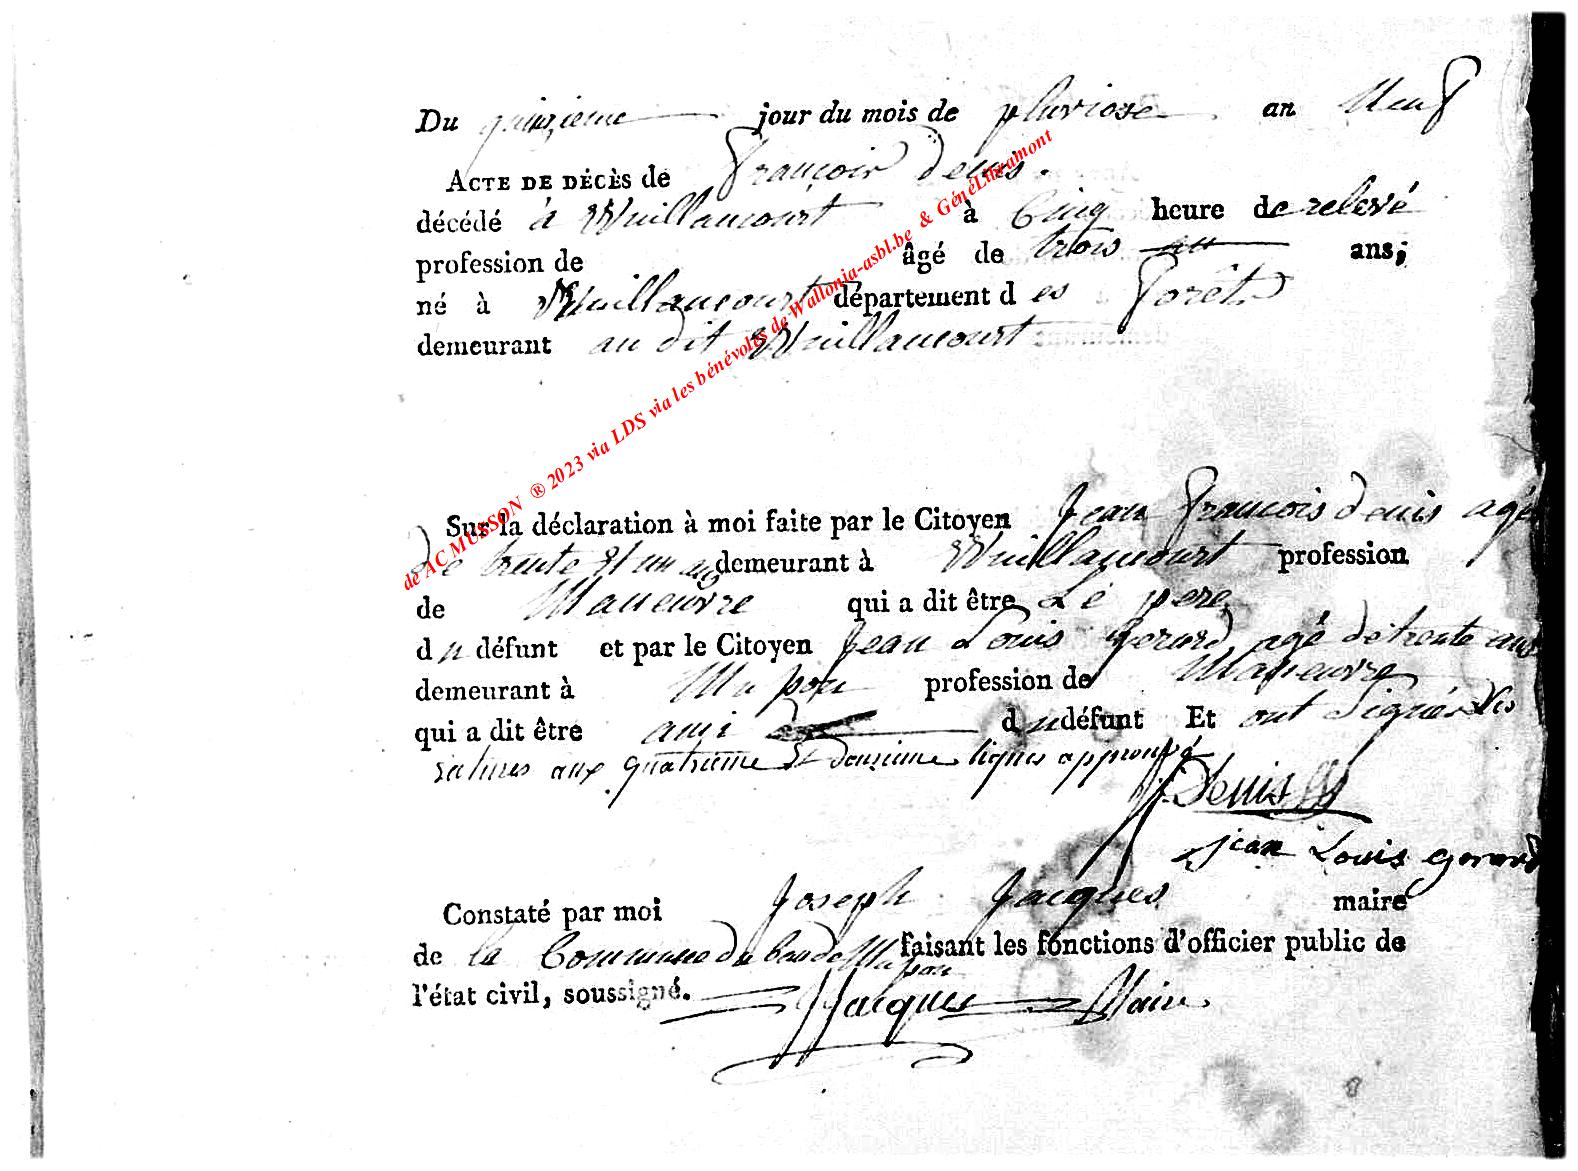 Du quinzieme jour du mois de pluviose an Neuf
ACTE DE DÉCÈS de françois denis.
décédé à Willancourt à Cinq heure de relevé
profession de âgé de trois ans;
né à Willancourt département des forêts
demeurant au dit Willancourt
Sur la déclaration à moi faite par le Citoyen Jean françois denis agé
de trente et un ans demeurant à Willancourt profession
de Maneuvre qui a dit être Le pere
du défunt et par le Citoyen Jean Louis Gerard agé de trente ans
demeurant à Mupon profession de Maneuvre
qui a dit être ami du défunt Et ont Signés Les
ratures aux quatrieme et douzieme lignes approuvé
J. Denis
jean Louis gerard
Constaté par moi Joseph Jacques maire
de la Commune du faisant les fonctions d'officier public de
l'état civil, soussigné. Jacques Maire
de ACMUSSON ® 2023 via LDS via les bénévoles de Wallonia-asbl.be & GénéLibramont